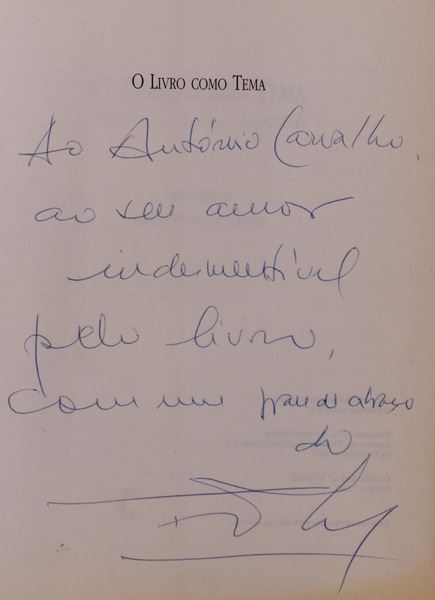 O LIVRO COMO TEMA
Ao António Carvalho,
ao seu amor
indesmentível
pelo livro,
com um grande abraço
do